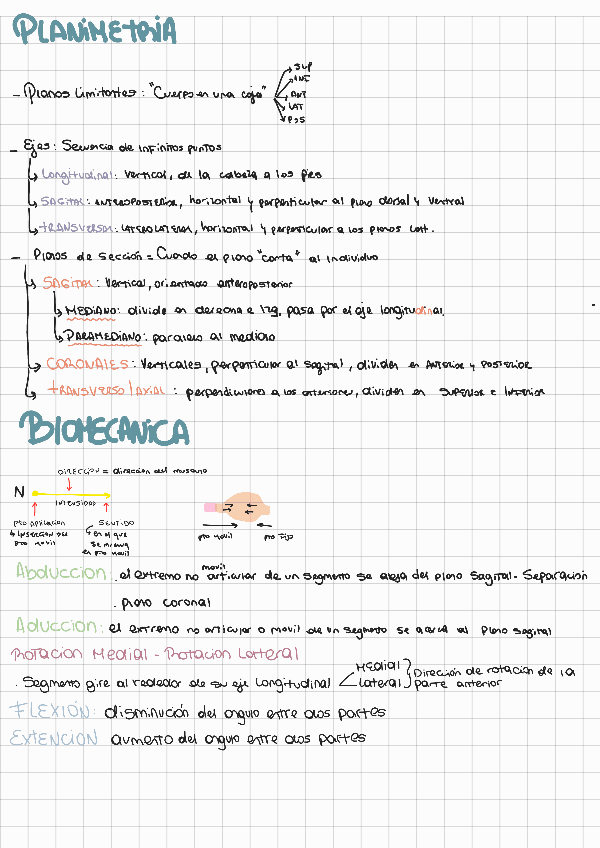 PLANIMETRIA
- Planos Limitantes: "Cuerpo en una caja"
SUP
INF
ANT
LAT
POS
- Ejes: Secuencia de infinitos puntos
Longitudinal: vertical, de la cabeza a los pies
SAGITAL: ANTEROPOSTERIOR, horizontal y perpenticular al plano dorsal y ventral
TRANSVERSAL: LATEROLATERAL, horizontal y perpenticular a los planos Lat.
- Planos de sección = Cuando el plano "corta" al individuo
SAGITAL: Vertical, orientado anteroposterior
MEDIANO: divide en derecha e izq. pasa por el eje longitudinal.
PARAMEDIANO: paralelo al medio
CORONALES: Verticales, perpenticular al sagital, dividen en ANTERIOR y POSTERIOR
TRANSVERSO/AXIAL: perpendiculares a los anteriores, dividen en SUPERIOR E INFERIOR
BIOMECANICA
DIRECCION = dirección del musculo
N
INTENSIDAD
PTO APLICACION
INSERCION DEL
PTO MOVIL
SENTIDO
en el que
se mueve
el PTO MOVIL
PTO MOVIL
PTO FIJO
movil
Abduccion: . el extremo no articular de un segmento se aleja del plano Sagital - Separación
. plano coronal
Aduccion: el extremo no articular o movil de un segmento se acerca al plano sagital
Rotacion Medial - Rotacion Latteral
. Segmento gire al rededor de su eje Longitudinal
Medial
Lateral
Dirección de rotacion de la
parte anterior
FLEXIÓN: disminución del angulo entre dos partes
EXTENCION aumento del angulo entre dos partes